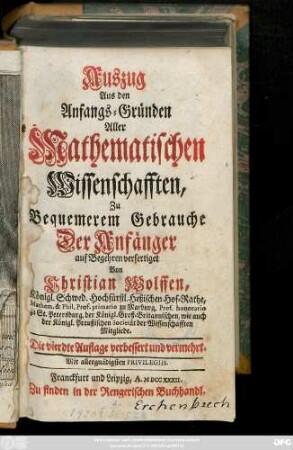 Auszug
Aus den
Anfangs-Gründen
Aller
Mathematischen
Wissenschafften,
Zu
Bequemerem Gebrauche
Der Anfänger
auf Begehren verfertiget
Von
Christian Wolffen,
Königl. Schwed. Hochfürstl. Heßischen Hof-Rathe,
Mathem. & Phil. Prof. primario zu Marburg, Prof. honorario
zu St. Petersburg, der Königl. Groß-Britannischen, wie auch
der Königl. Preußischen Societät der Wissenschafften
Mitgliede.
Die vierdte Auflage verbessert und vermehrt.
Mit allergnädigsten PRIVILEGIIS.
Franckfurt und Leipzig, A. MDCCXXXII.
Zu finden in der Rengerischen Buchhandl.